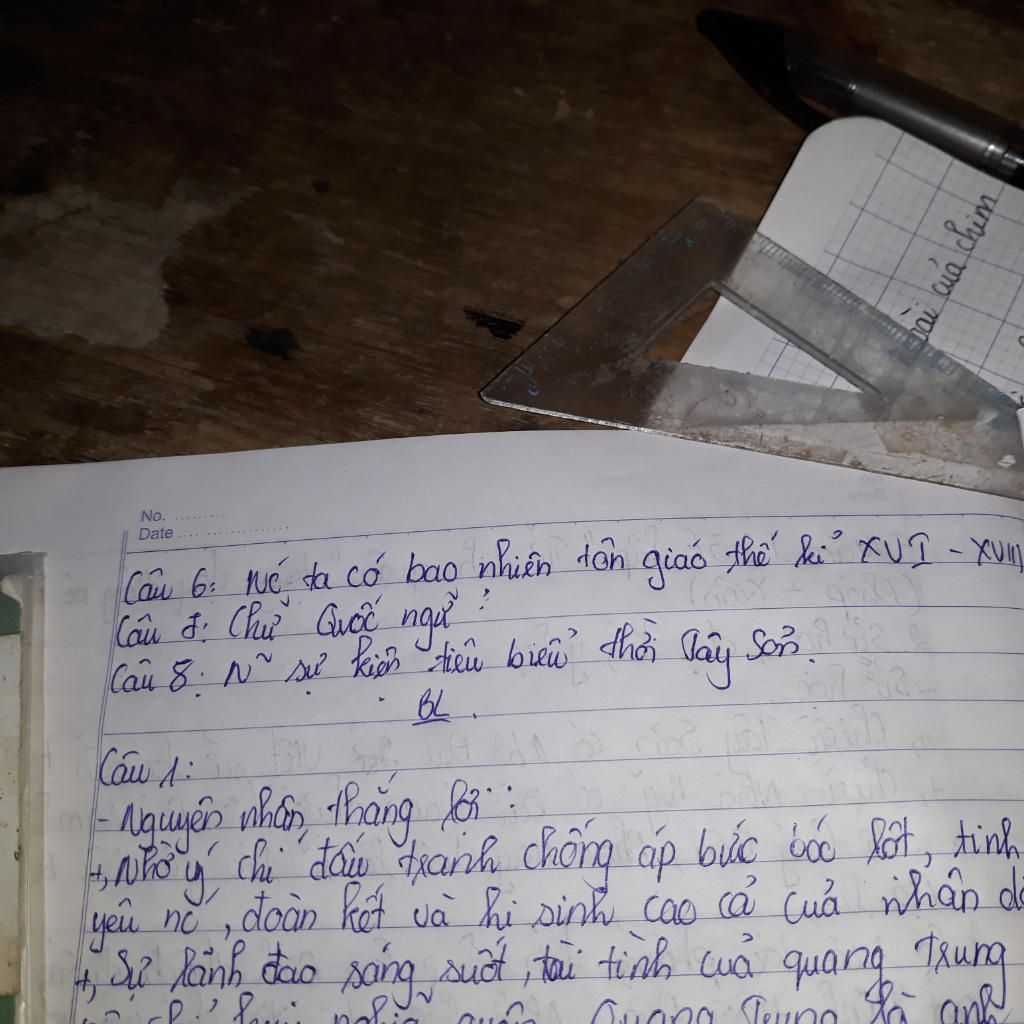 hài của chim
No. ........
Date ....................
Câu 6: Nć ta có bao nhiên tôn giáo thế kỉ XVI - XVIII
Câu 7: Chữ Quốc ngữ?
Câu 8: N~ sự kiện tiêu biểu thời Tây Sơn.
BL.
Câu 1:
- Nguyên nhân thắng lợi:
+, Nhờ ý chí đấu tranh chống áp bức bóc lột, tinh
yêu nć, đoàn kết và hi sinh cao cả của nhân dâ
+, Sự lãnh đạo sáng suốt, tài tình của quang trung
nghĩa quân. Quang Trung là anh